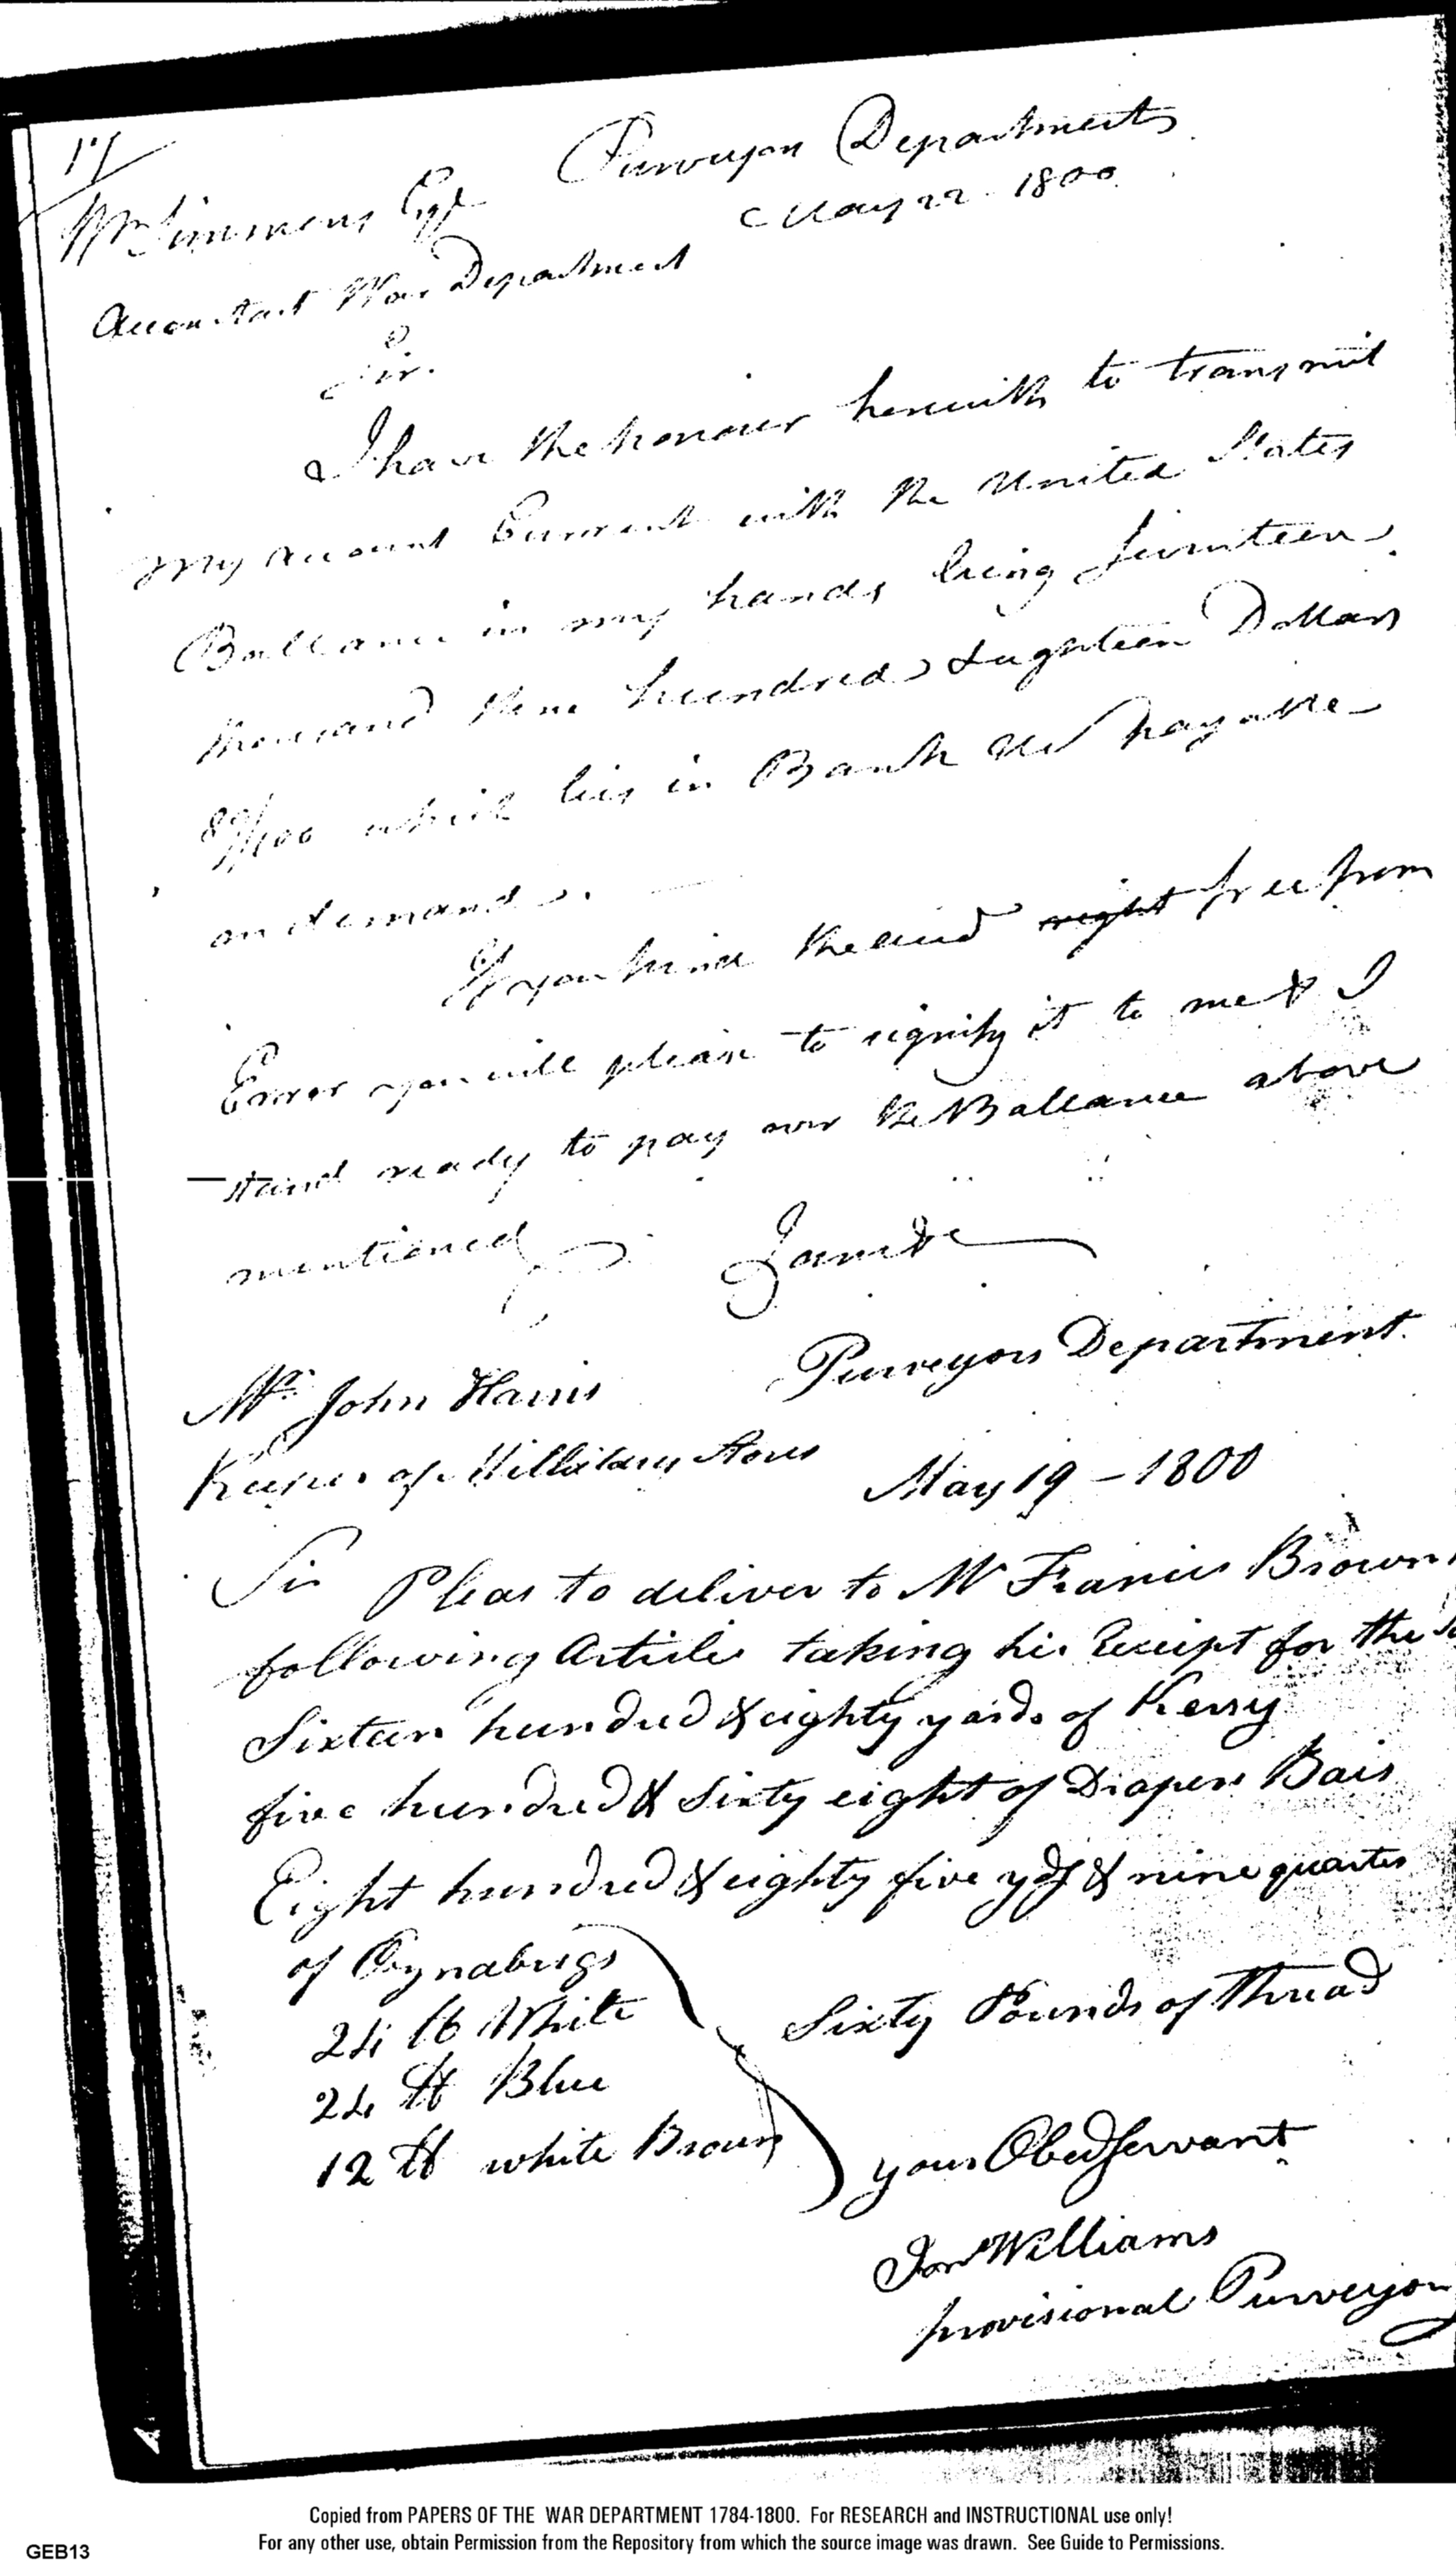 17
Purveyors Department
May 22 1800
Wm Simmons Esqr
Accountant War Department
Sir.
I have the honour herewith to transmit
My Account Current with the United States
Ballance in my hands being seventeen
thousand three hundred & Eighteen Dollars
/100 which lies in Bank and payable
on demand.
If you find the said right free from
Error you will please to signify it to me & I
stand ready to pay over the Ballance above
mentioned
I am &c
Purveyors Department.
Mr. John Harris
Keeper of Millitary Stores
May 19 - 1800
Sir Pleas to deliver to Mr Francis Brown
following Articles taking his Receipt for the
Sixteen hundred & eighty yards of Kersey
five hundred & Sixty eight of Diapers Bais
Eight hundred & eighty five yds & nine quarter
of Oznabrigs
24 lb White
Sixty Pounds of Thread
24 lb Blue
12 lb white Brown
your Obed Servant
Jon Williams
provisional Purveyor
Copied from PAPERS OF THE WAR DEPARTMENT 1784-1800. For RESEARCH and INSTRUCTIONAL use only!
For any other use, obtain Permission from the Repository from which the source image was drawn. See Guide to Permissions.
GEB13